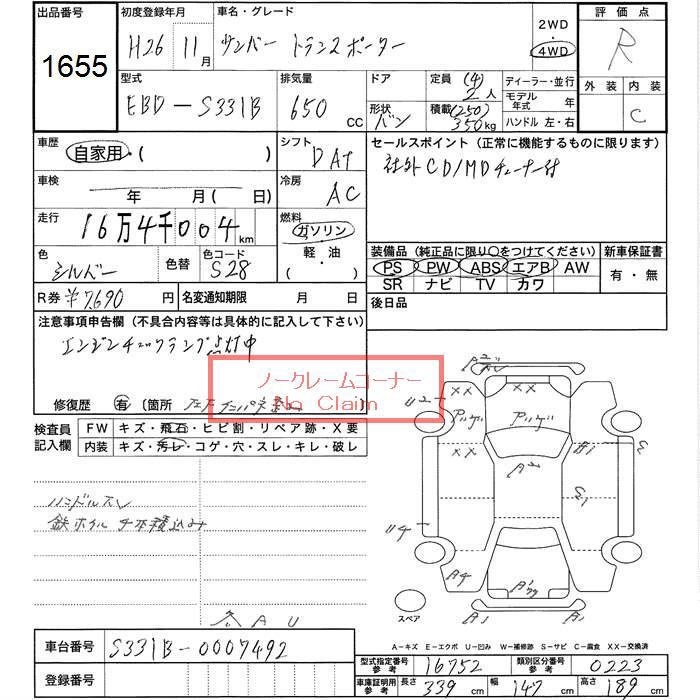 出品番号
1655
初度登録年月
H26 11月
車名・グレード
サンバー トランスポーター
2WD
・
4WD
評価点
R
外装 内装
C
型式
EBD-S331B
排気量
650 CC
ドア
形状
バン
定員 (4)
2人
積載 (250)
350kg
ディーラー・並行
モデル年式 年
ハンドル 左・右
車歴
自家用・( )
シフト
DAT
車検
年 月( 日)
冷房
AC
走行
16万4千004km
燃料
ガソリン
軽・油
( )
色
シルバー
色替
色コード
S28
R券 ¥7,690円
名変通知期限 月 日
セールスポイント(正常に機能するものに限ります)
社外CD/MDチューナー付
装備品(純正品に限り○をつけてください)
PS PW ABS エアB AW
SR ナビ TV カワ
新車保証書
有・無
後日品
注意事項申告欄(不具合内容等は具体的に記入して下さい)
エンジンチェックランプ点灯中
ノークレームコーナー
No Claim
修復歴 有 〔箇所
検査員記入欄
FW キズ・飛石・ヒビ割・リペア跡・X要
内装 キズ・汚レ・コゲ・穴・スレ・キレ・破レ
ハンドルスレ
鉄ホイル4本積込み
A2
XX XX
U2
アゲ アゲ
XX
A2
U4
A4
A1
A1
スペア
車台番号 S331B-0007492
登録番号
A-キズ E-エクボ U-凹み W-補修跡 S-サビ C-腐食 XX-交換済
型式指定番号参考 16752
類別区分番号参考 0223
車庫証明用参考 長さ 339cm 幅 147cm 高さ 189cm